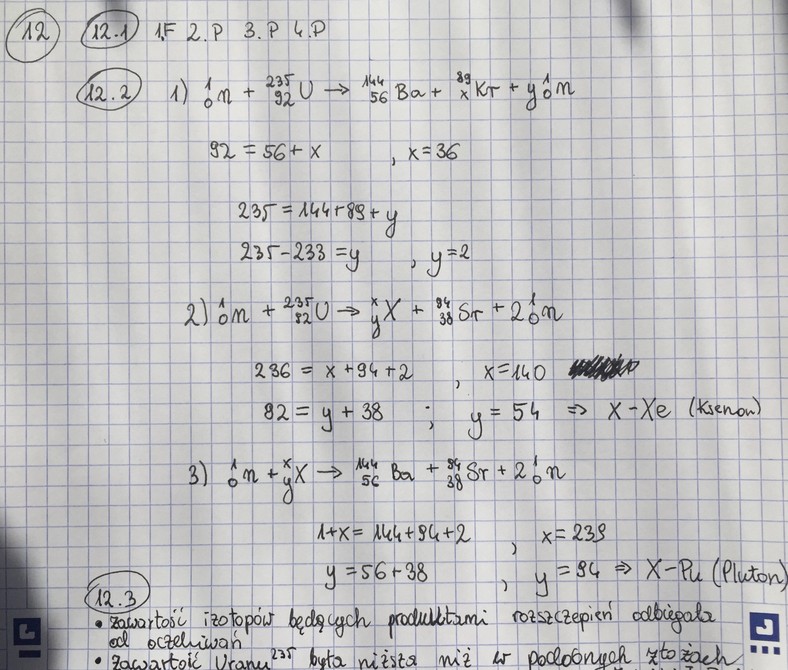 12 12.1 1.F 2.P 3.P 4.P
12.2 1) ¹₀n + ²³⁵₉₂U → ¹⁴⁴₅₆Ba + ⁸⁹ₓKr + y¹₀n
92 = 56 + x , x = 36
235 = 144 + 89 + y
235 - 233 = y , y = 2
2) ¹₀n + ²³⁵₉₂U → ˣᵧX + ⁹⁴₃₈Sr + 2¹₀n
236 = x + 94 + 2 , x = 140
92 = y + 38 ; y = 54 ⇒ X - Xe (Ksenon)
3) ¹₀n + ˣᵧX → ¹⁴⁴₅₆Ba + ⁹⁴₃₈Sr + 2¹₀n
1 + x = 144 + 94 + 2 , x = 239
y = 56 + 38 , y = 94 ⇒ X - Pu (Pluton)
12.3
• zawartość izotopów będących produktami rozszczepień odbiegała
od oczekiwań
• zawartość Uranu ²³⁵ była niższa niż w podobnych złożach